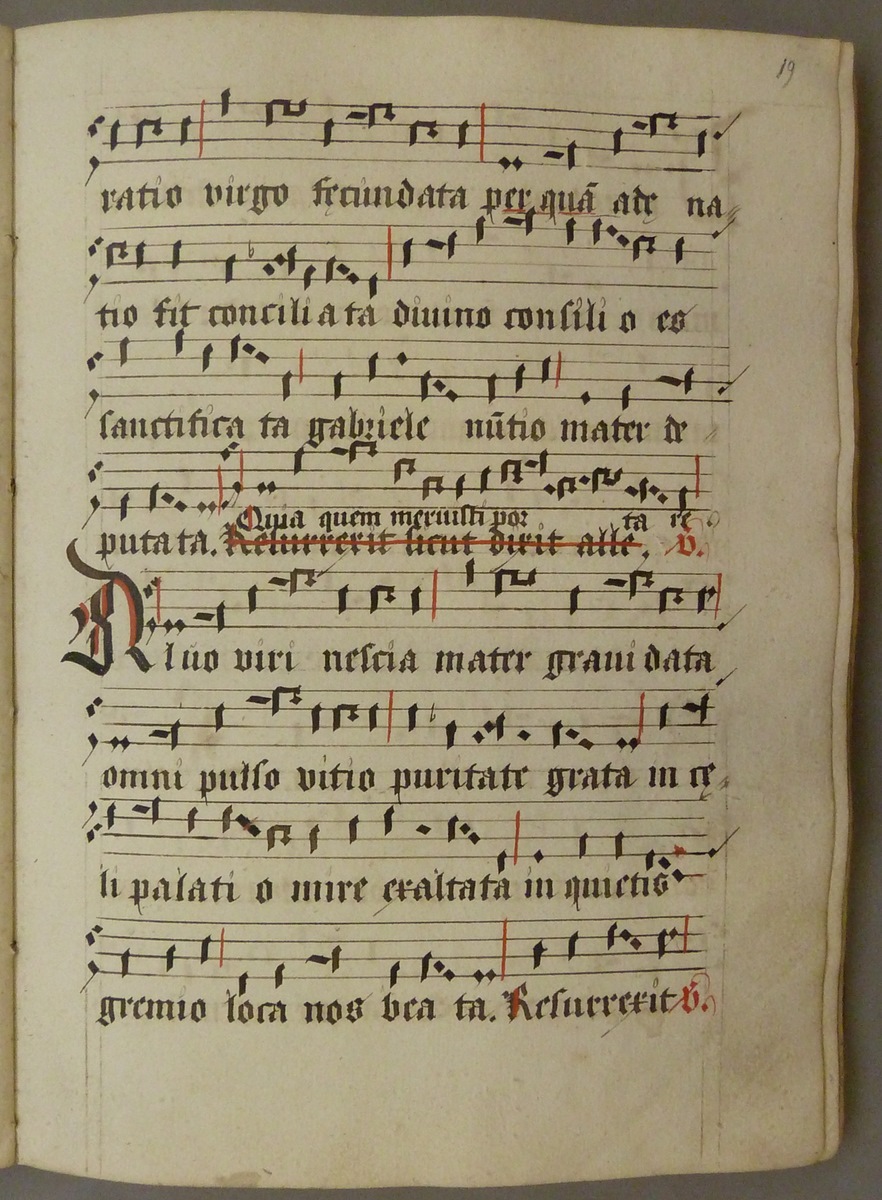 19
ratio virgo fęcundata per quā adę na
tio fit conciliata divino consilio es
sanctificata gabriele nūtio mater de
Quia quem meruisti por ta re
putata. Resurrexit sicut dixit alle. V.
Aluo viri nescia mater gravidata
omni pulso vitio puritate grata in cę
li palatio mire exaltata in quietis
gremio loca nos beata. Resurrexit V.